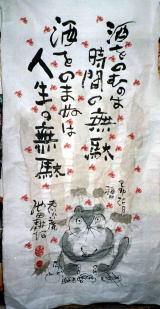 酒をのむのは
時間の無駄
酒をのまぬは
人生の無駄